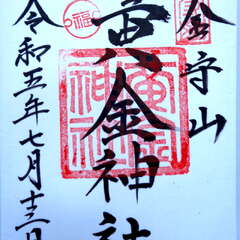 金守山
黄金神社
福
令和五年七月十三日